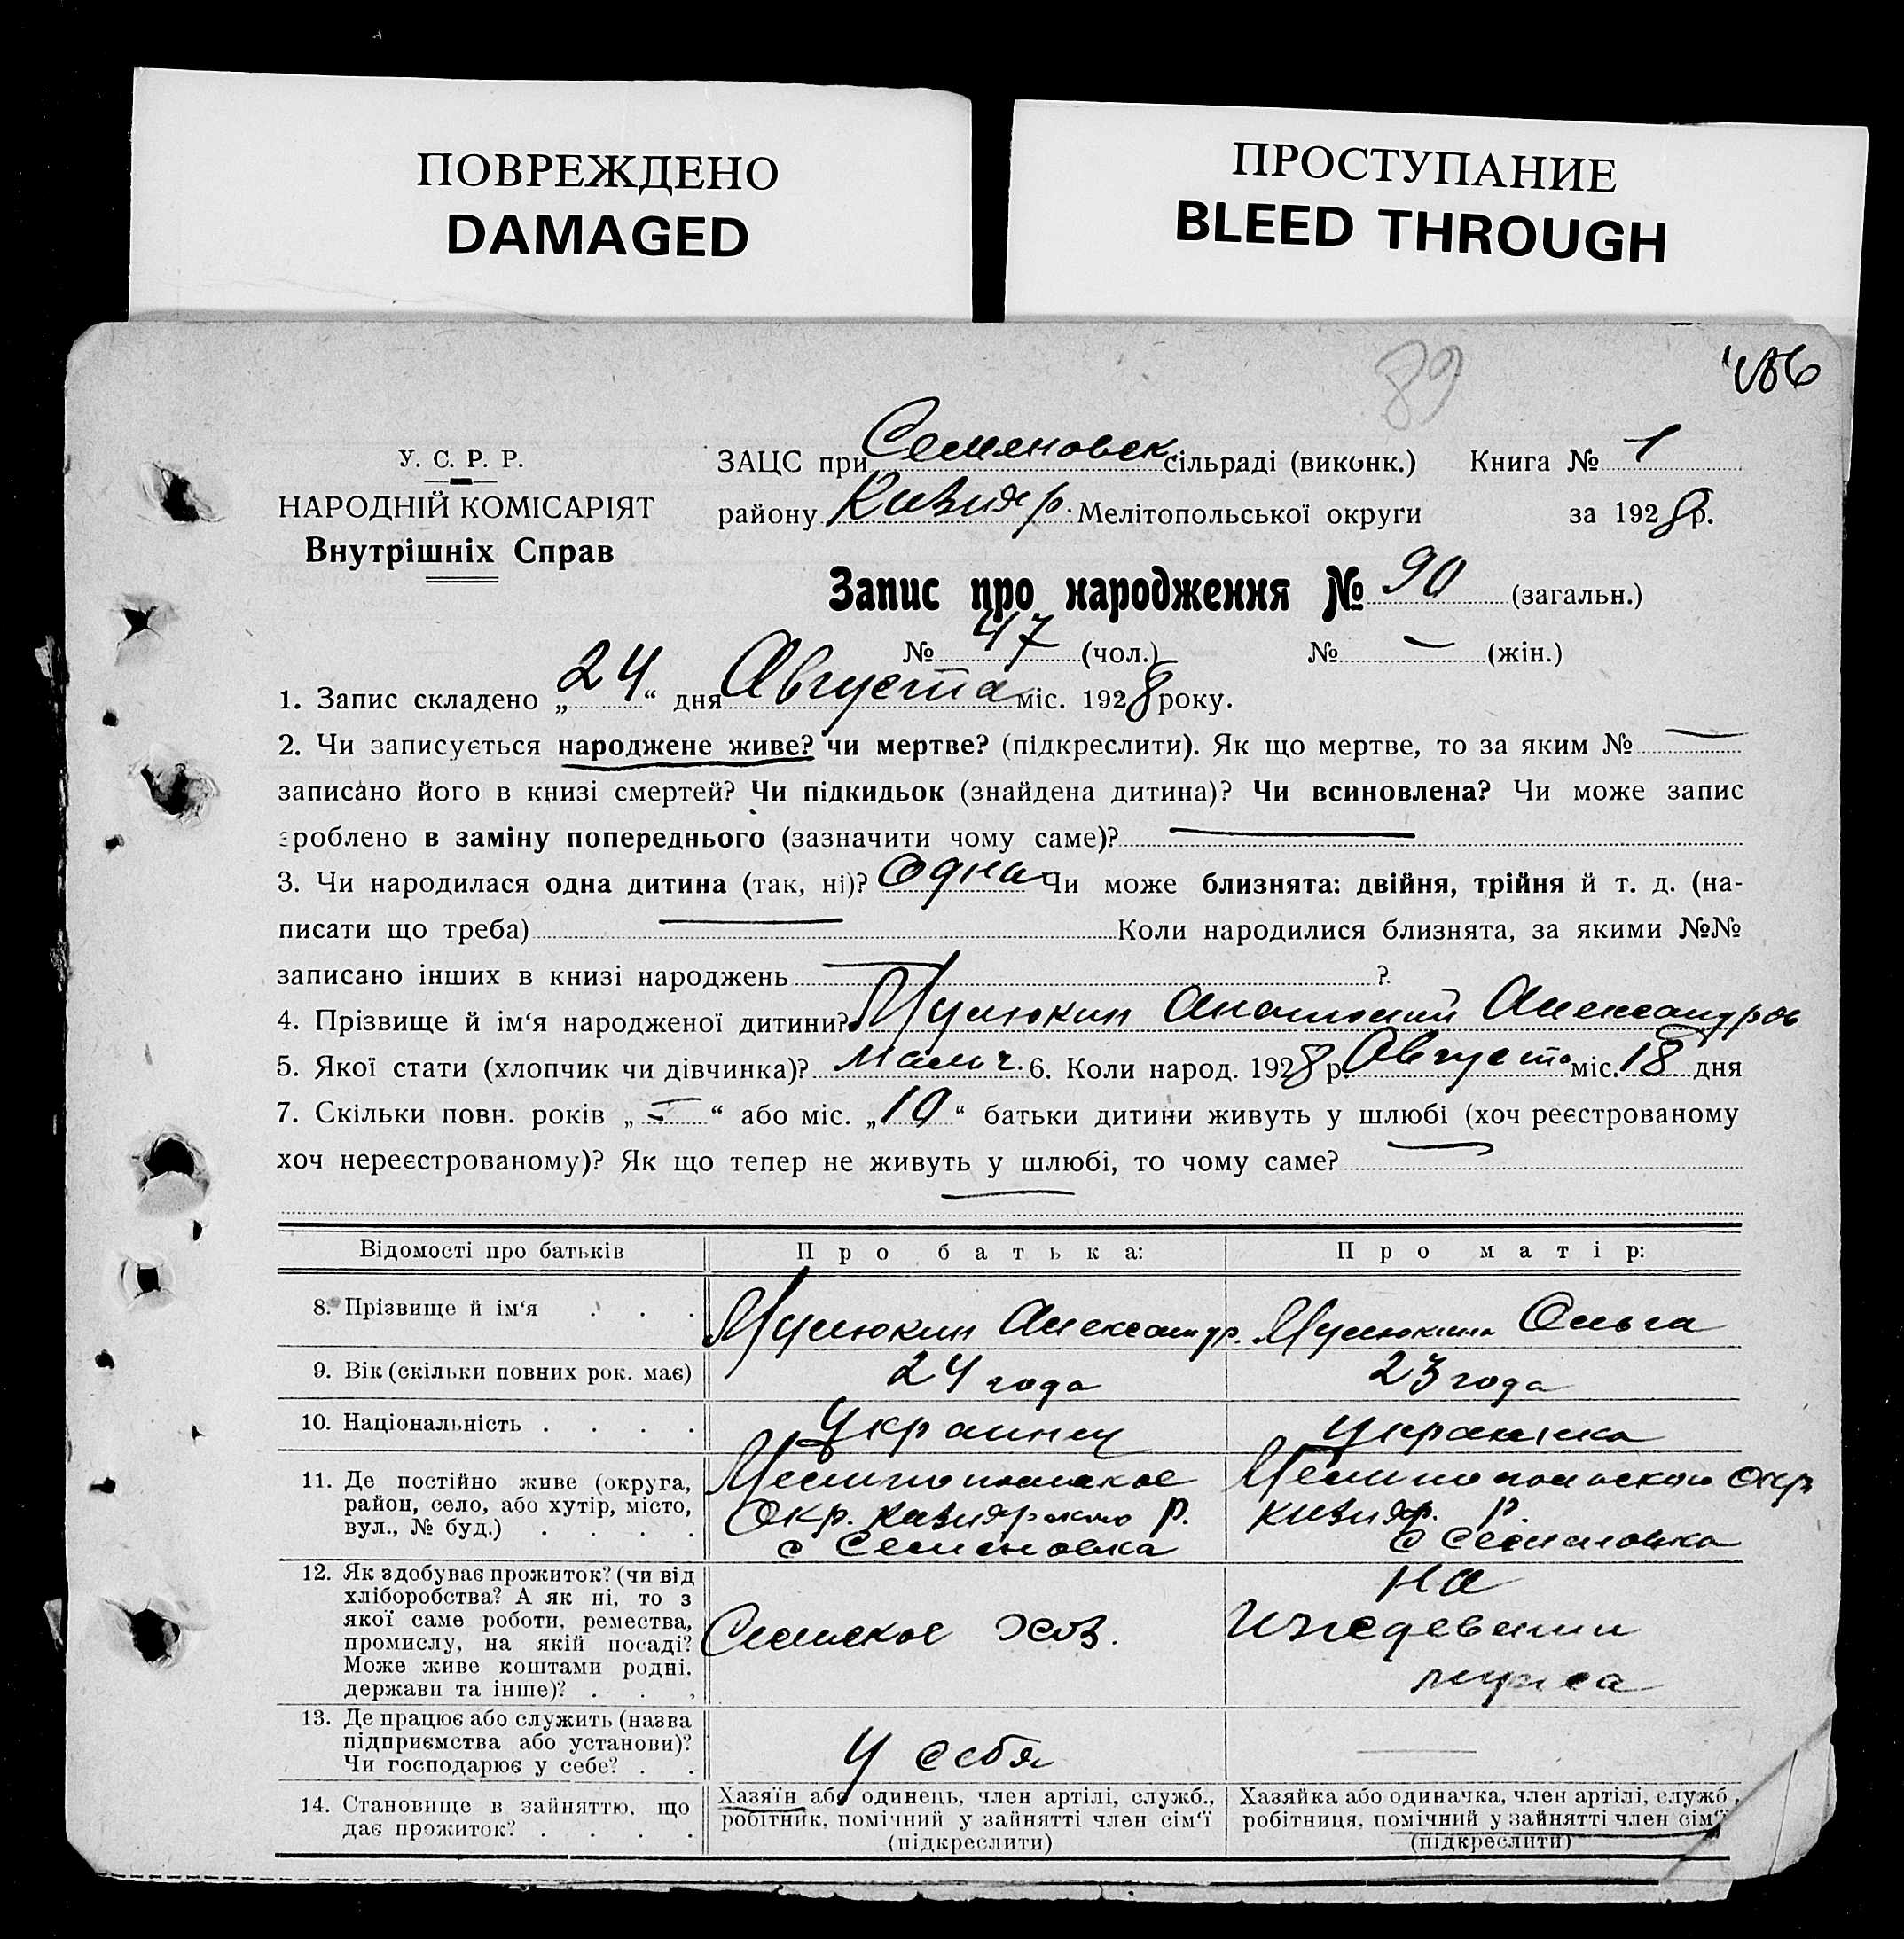 ПОВРЕЖДЕНО
DAMAGED
ПРОСТУПАНИЕ
BLEED THROUGH
89
У. С. Р. Р.
НАРОДНІЙ КОМІСАРІЯТ
Внутрішніх Справ
ЗАЦС при Семеновск сільраді (виконк.) Книга № 1
району Кизияр. Мелітопольської округи за 1928 р.
Запис про народження № 90 (загальн.)
№ 47 (чол.) № — (жін.)
1. Запис складено „24“ дня Августа міс. 1928 року.
2. Чи записується народжене живе? чи мертве? (підкреслити). Як що мертве, то за яким № —
записано його в книзі смертей? Чи підкидьок (знайдена дитина)? Чи всиновлена? Чи може запис
зроблено в заміну попереднього (зазначити чому саме)? —
3. Чи народилася одна дитина (так, ні)? Одна Чи може близнята: двійня, трійня й т. д. (на-
писати що треба) — Коли народилися близнята, за якими №№
записано інших в книзі народжень — ?
4. Прізвище й ім‘я народженої дитини? Анатолий Александров
5. Якої стати (хлопчик чи дівчинка)? Мальч. 6. Коли народ. 1928 р. Августа міс. 18 дня
7. Скільки повн. років „ — “ або міс. „10“ батьки дитини живуть у шлюбі (хоч реєстрованому
хоч нереєстрованому)? Як що тепер не живуть у шлюбі, то чому саме? —
—
Відомості про батьків Про батька: Про матір:
8. Прізвище й ім‘я . . . Александр. Ольга
9. Вік (скільки повних рок. має) 24 года 23 года
10. Національність . . . . Украинец Украинка
11. Де постійно живе (округа,
район, село, або хутір, місто,
вул., № буд.) . . . .
Мелитопольское
Окр. Кизиярского р.
с Семеновка
Мелитопольской Окр
Кизияр. р.
с Семеновка
12. Як здобуває прожиток? (чи від
хліборобства? А як ні, то з
якої саме роботи, ремества,
промислу, на якій посаді?
Може живе коштами родні,
держави та інше)? . . .
Сельское хоз.
на
иждевении
мужа
13. Де працює або служить (назва
підприємства або установи)?
Чи господарює у себе? . .
У себя
—
14. Становище в зайняттю, що
дає прожиток? . . . .
Хазяїн або одинець, член артілі, служб.,
робітник, помічний у зайнятті член сім‘ї
(підкреслити)
Хазяйка або одиначка, член артілі, служб.,
робітниця, помічний у зайнятті член сім‘ї
(підкреслити)